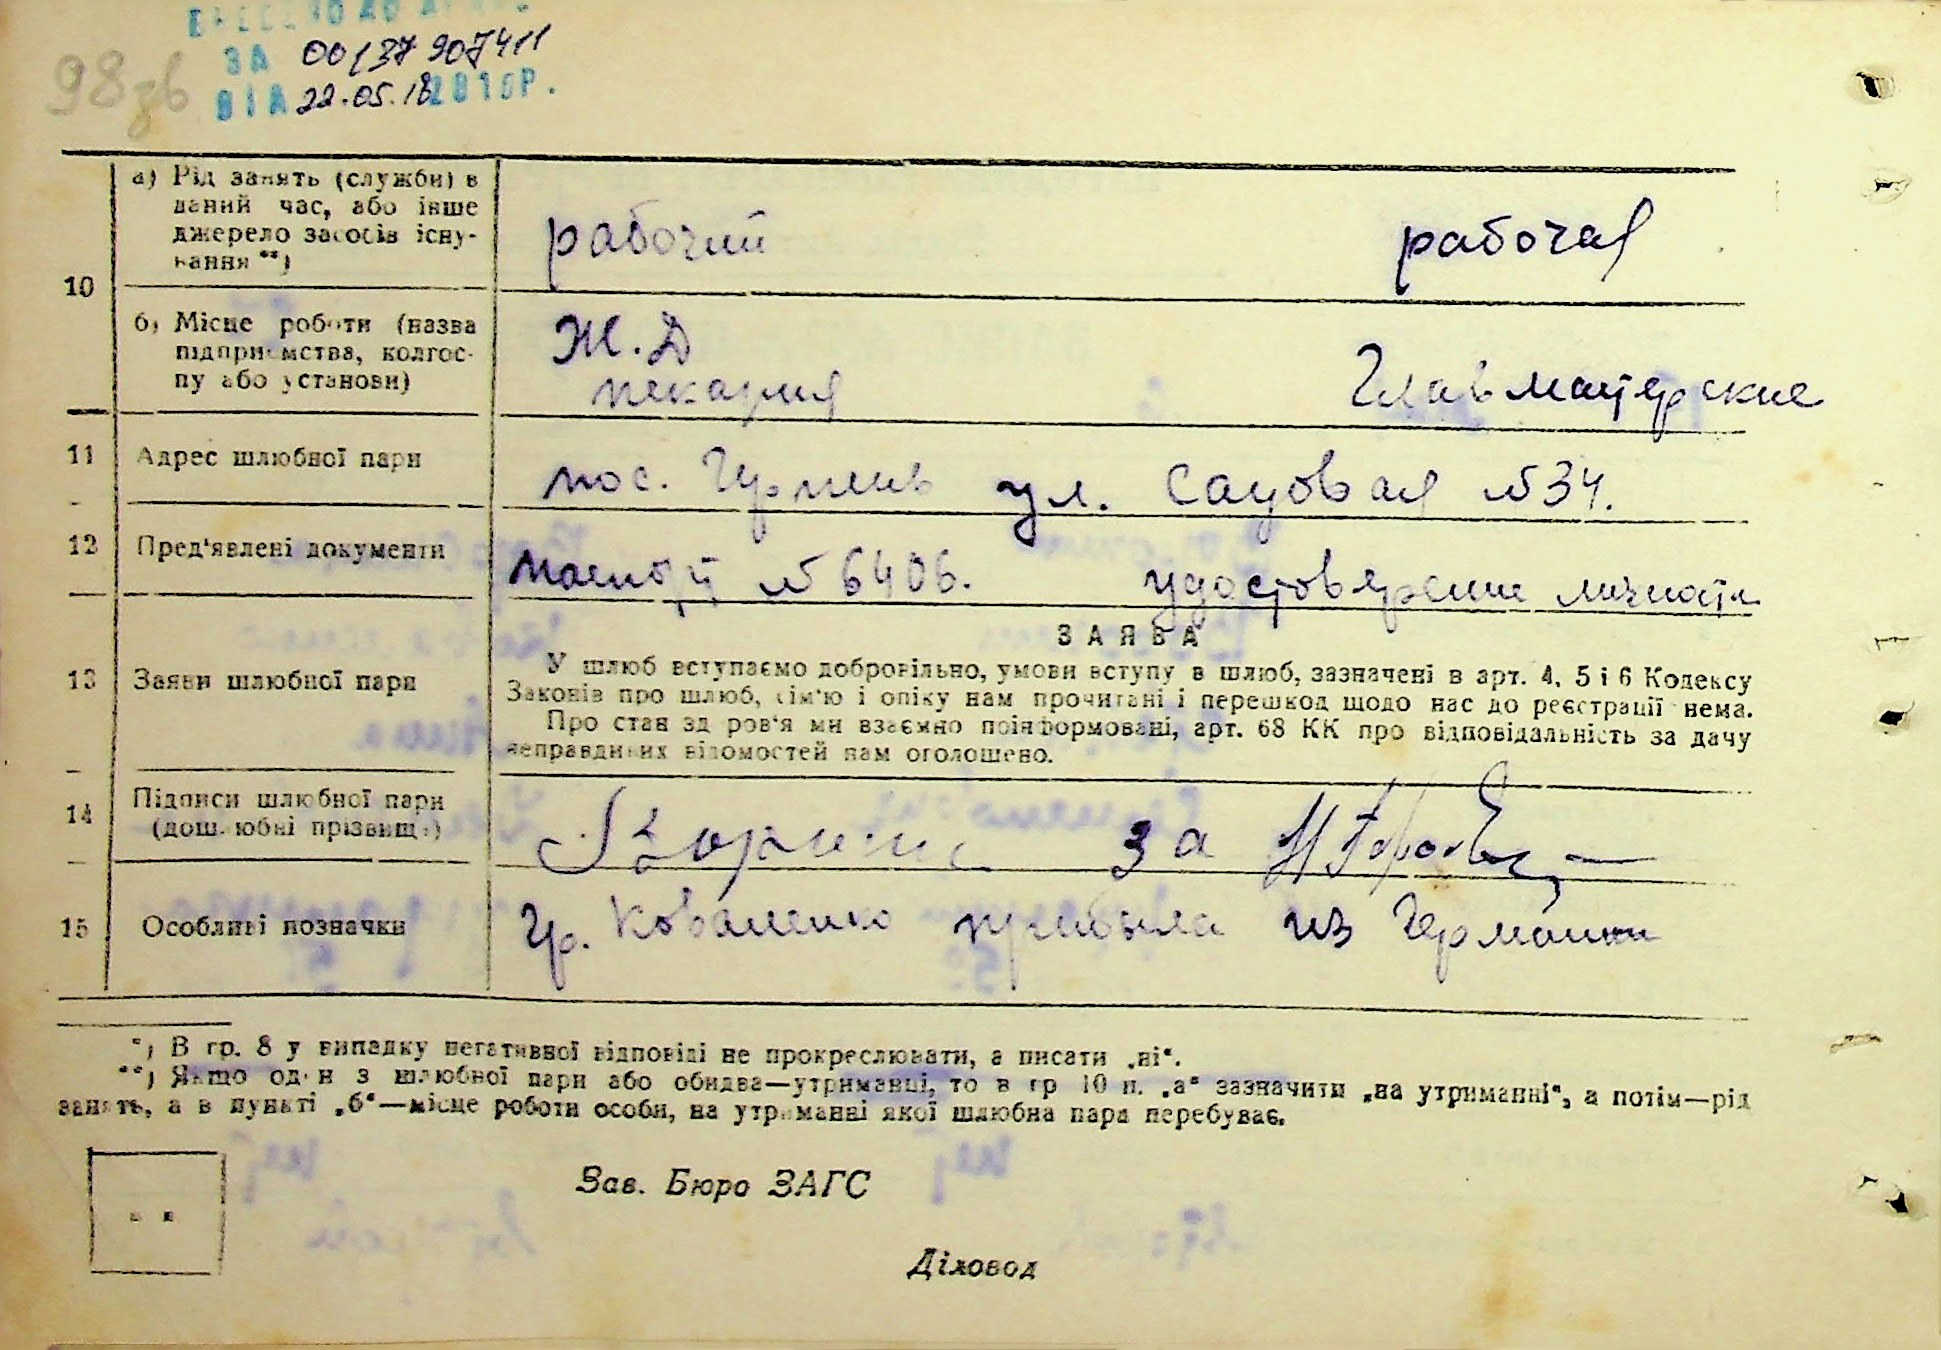 98зв
ЗА 00137907411
ВІД 22.05.18 201 Р.
10
а) Рід занять (служби) в
даний час, або інше
джерело засобів існу-
вання **)
рабочий
рабочая
б) Місце роботи (назва
підприємства, колгос-
пу або установи)
Ж.Д
пекария
Главмастерские
11
Адрес шлюбної пари
пос. ул. Садовая №34.
12
Пред'явлені документи
паспорт №6406. удостоверение личности
ЗАЯВА
13
Заяви шлюбної пари
У шлюб вступаємо добровільно, умови вступу в шлюб, зазначені в арт. 4, 5 і 6 Кодексу
Законів про шлюб, сім'ю і опіку нам прочитані і перешкод щодо нас до реєстрації нема.
Про стан здоров'я ми взаємно поінформовані, арт. 68 КК про відповідальність за дачу
неправдивих відомостей нам оголошено.
14
Підписи шлюбної пари
(дошлюбні прізвища)
за
15
Особливі позначки
Гр. Коваленко прибыла из Германии
*) В гр. 8 у випадку негативної відповіді не прокреслювати, а писати „ні“.
**) Якщо один з шлюбної пари або обидва—утриманці, то в гр 10 п. „а“ зазначити „на утриманні“, а потім—рід
занять, а в пункті „б“—місце роботи особи, на утриманні якої шлюбна пара перебуває.
Зав. Бюро ЗАГС
Діловод